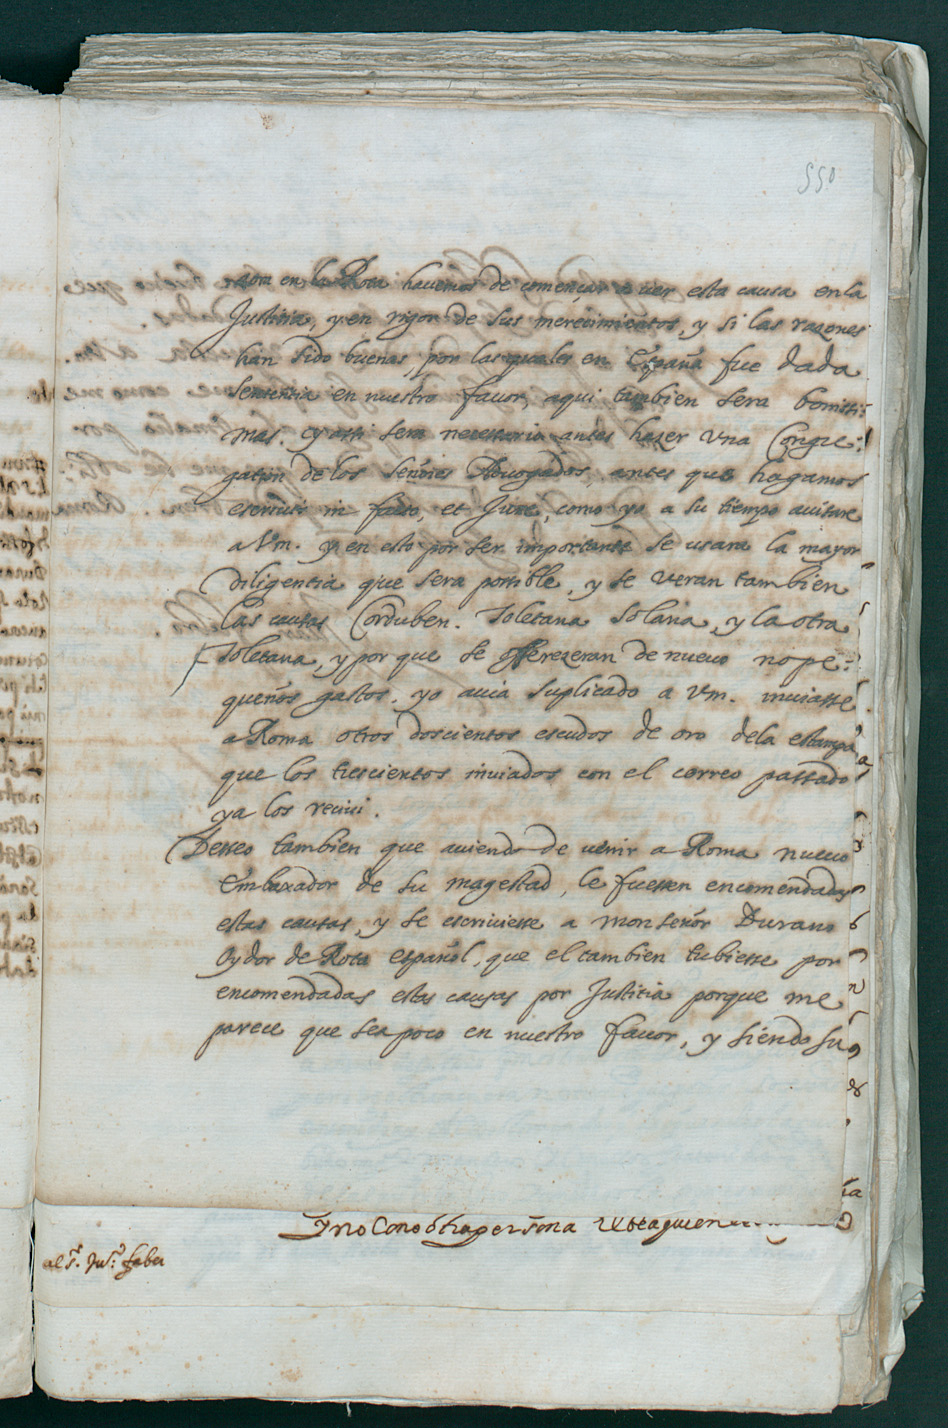 550
ata en la Rota havemos de començar a ver esta causa en la
Justitia, y en rigor de sus merecimientos, y si las razones
han sido buenas, por las quales en España fue dada
sententia en nuestro favor, aqui tambien sera bonissi=
mas. y assi sera necessario antes hazer una Congre=
gation de los Señores Abvogados, antes que hagamos
escrivir in facto, et Jure, como yo a su tiempo avisare
a Vm. y en esto por ser importante se usara la mayor
diligentia que sera possible, y se veran tambien
las causas Corduben. Toletana Solana, y la otra
Toletana, y por que se offrezeran de nuevo no pe=
queños gastos, yo avia suplicado a Vm. inviasse
a Roma otros doscientos escudos de oro dela estampa
que los trescientos inviados con el correo passado
ya los recivi.
Desseo tambien que aviendo de venir a Roma nuevo
Embaxador de su magestad, le fuessen encomendadas
estas causas, y se escriviesse a Monseñor Durano
Oydor de Rota español, que el tambien tubiesse por
encomendadas estas causas por Justitia porque me
parece que sea poco en nuestro favor, y siendo su
Y no Conoo otra persona
al Sr. Jus.o faber